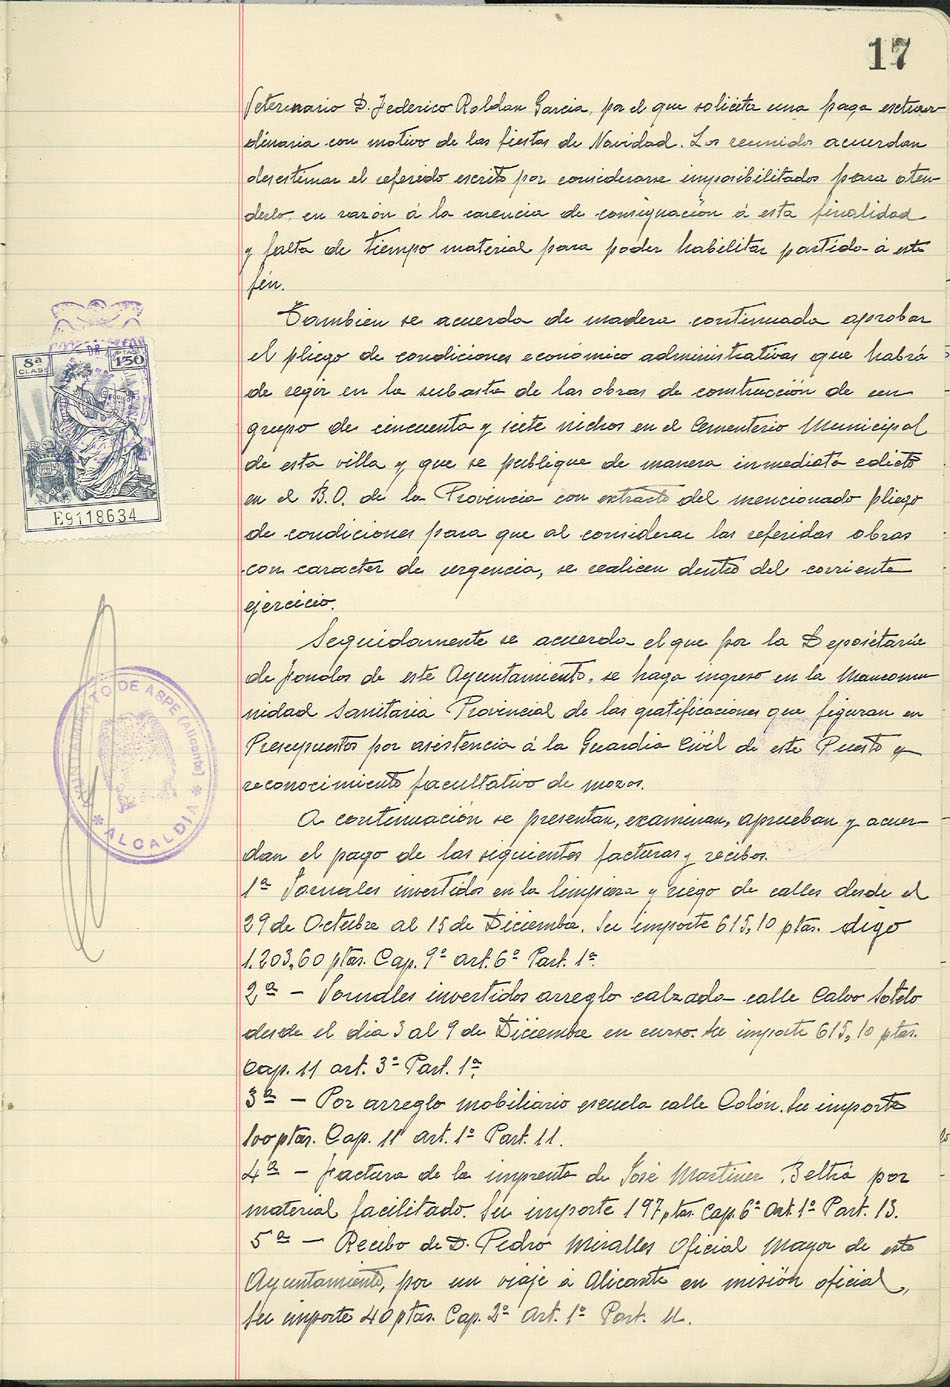 17
Veterinario D. Federico Roldan Garcia, por el que solicita una paga extraor-
dinaria con motivo de las fiestas de Navidad. Los reunidos acuerdan
desestimar el referido escrito por considerarse imposibilitados para aten-
derlo, en razón á la carencia de consignación á esta finalidad
y falta de tiempo material para poder habilitar partida á este
fin.
Tambien se acuerda de madera continuada aprobar
el pliego de condiciones económico administrativas que habrá
de regir en la subasta de las obras de construcción de un
grupo de cincuenta y siete nichos en el Cementerio Municipal
de esta villa y que se publique de manera inmediata edicto
en el B.O. de la Provincia con extracto del mencionado pliego
de condiciones para que al considerar las referidas obras
con caracter de urgencia, se realicen dentro del corriente
ejercicio.
Seguidamente se acuerda el que por la Depositaría
de fondos de este Ayuntamiento, se haga ingreso en la Mancomu-
nidad Sanitaria Provincial de las gratificaciones que figuran en
Presupuestos por asistencia á la Guardia Civil de este Puesto y
reconocimiento facultativo de mozos.
A continuación se presentan, examinan, aprueban y acuer-
dan el pago de las siguientes facturas y recibos.
1ª Jornales invertidos en la limpieza y riego de calles desde el
29 de Octubre al 15 de Diciembre. Su importe 615,10 ptas. digo
1.203,60 ptas. Cap. 9º art. 6º Part. 1ª.
2ª - Jornales invertidos arreglo calzada calle Calvo Sotelo
desde el dia 3 al 9 de Diciembre en curso. Su importe 615,10 ptas.
Cap. 11 art. 3º Part. 1ª.
3ª - Por arreglo mobiliario escuela calle Colón. Su importe
100 ptas. Cap. 11 art. 1º Part. 11.
4ª - Factura de la imprenta de José Martinez Beltrá por
material facilitado. Su importe 197 ptas. Cap. 6º Art. 1º Part. 13.
5ª - Recibo de D. Pedro Miralles Oficial Mayor de este
Ayuntamiento, por un viaje á Alicante en misión oficial,
Su importe 40 ptas. Cap. 2º Art. 1º Part. 11.
8ª CLASE
PTAS 1'50
E9118634
AYUNTAMIENTO DE ASPE (Alicante)
* ALCALDIA *